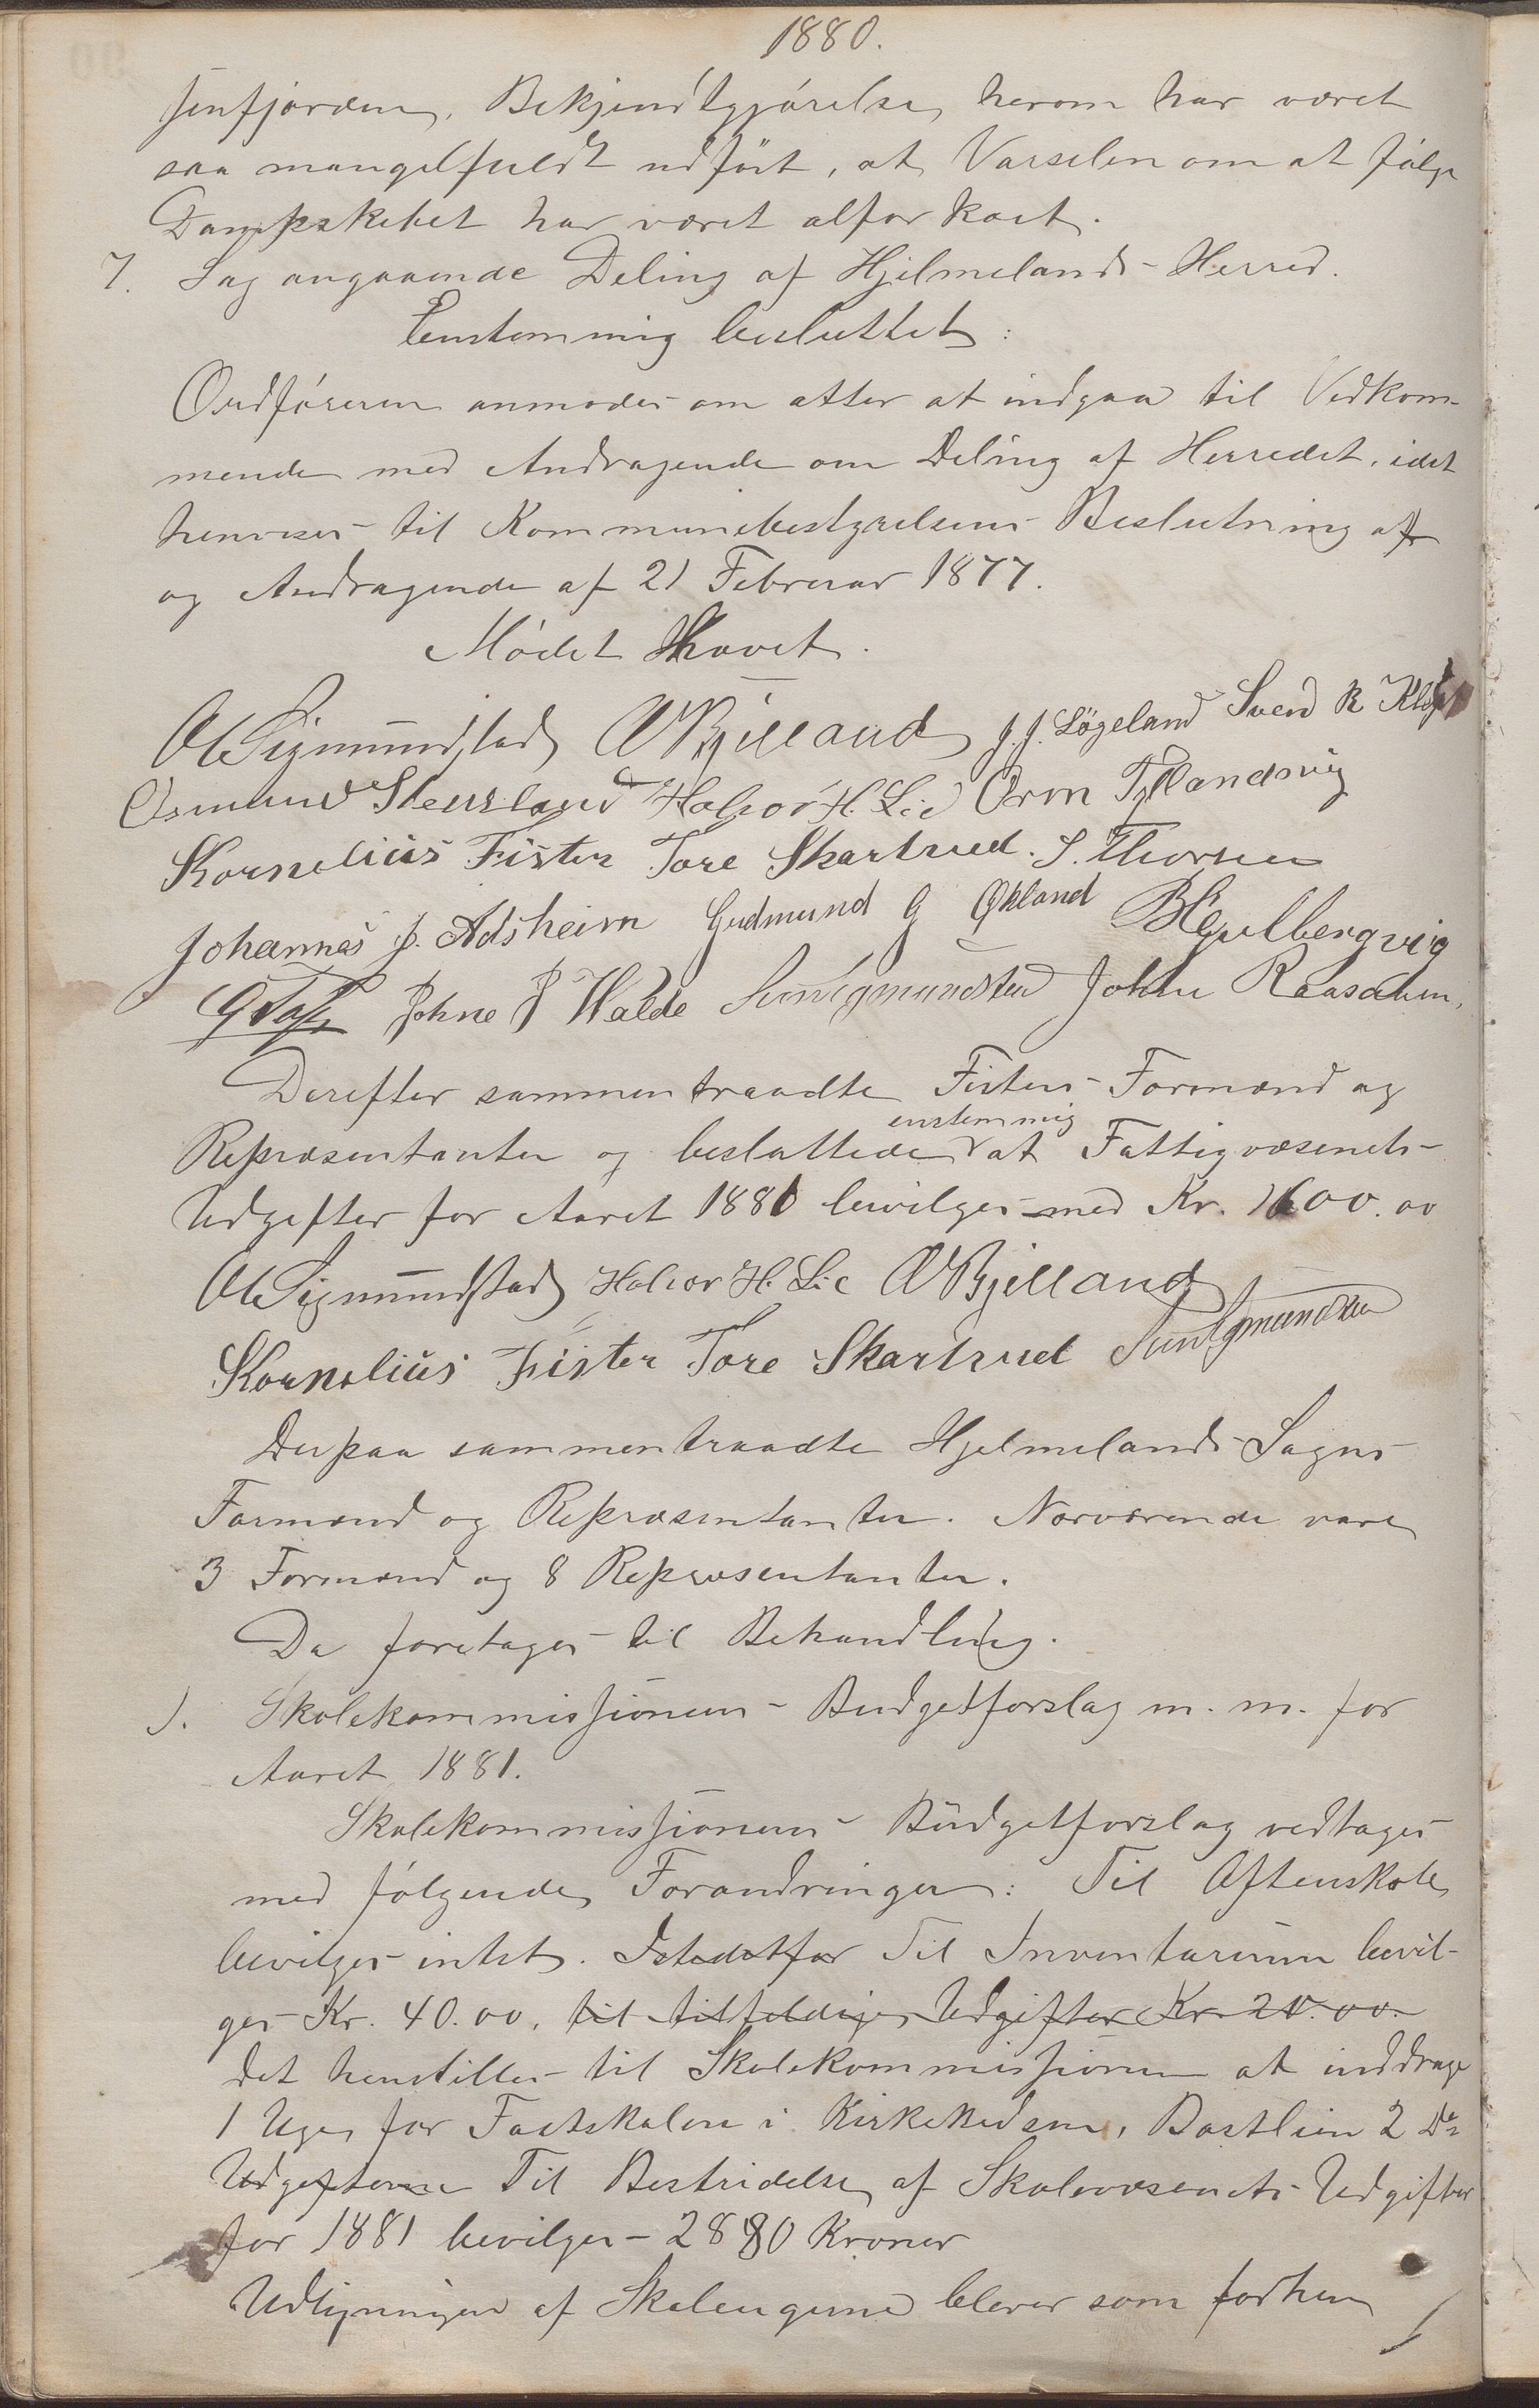 1880.
senfjorden, Bekjendtgjørelse herom har været
saa mangelfuldt udført, at Varselen om at følge
Dampskibet har været altfor kort.
7. Sag angaaende Deling af Hjelmelands Herred.
Eenstemmig besluttet:
Ordføreren anmodes om atter at indgaa til Vedkom-
mende med Andragende om Deling af Herredet, idet
henvises til Kommunebestyrelsens Beslutning af
og Andragende af 21 Februar 1877.
Mødet hævet.
Ol Sigmundstad O Bjelland J. J. Løgeland Svend R
Osmund Steensland Halvor H. Lie Orm Tytlandsvig
Kornelius Fister Tore Skartved. S. Thorsen
Johannes J. Adsheim Gudmund G Økland B Heulbergvig
Johne J Walde Sigmundstad John Raaschun
Derefter sammentraadte Fisters Formænd og
enstemmig
Repræsentanter og besluttede at Fattigvæsenets
Udgifter for Aaret 1881 bevilges med Kr. 1600.00
Ol Sigmundstad Halvor H. Lie O Bjelland
Kornelius Fister Tore Skartved Sigmundstad
Derpaa sammentraadte Hjelmelands Sogns
Formænd og Repræsentanter. Nærværende vare
3 Formænd og 8 Repræsentanter.
Da foretages til Behandling.
1. Skolekommissionens Budgetforslag m. m. for
Aaret 1881.
Skolekommissionens Budgetforslag vedtages
med følgende Forandringer: Til Aftenskole
bevilges intet. Istedetfor Til Inventarium bevil-
ges Kr. 40.00, til tilfeldige Udgifter Kr 20.00.
Det henstilles til Skolekommissionen at inddrage
1 Uge for Fastskolen i Kirkekredsen, Bastlien 2 Do
Udgifterne Til Bestridelse af Skolevæsenets Udgifter
for 1881 bevilges 2880 Kroner
Udligningen af Skoleugerne bliver som forhen